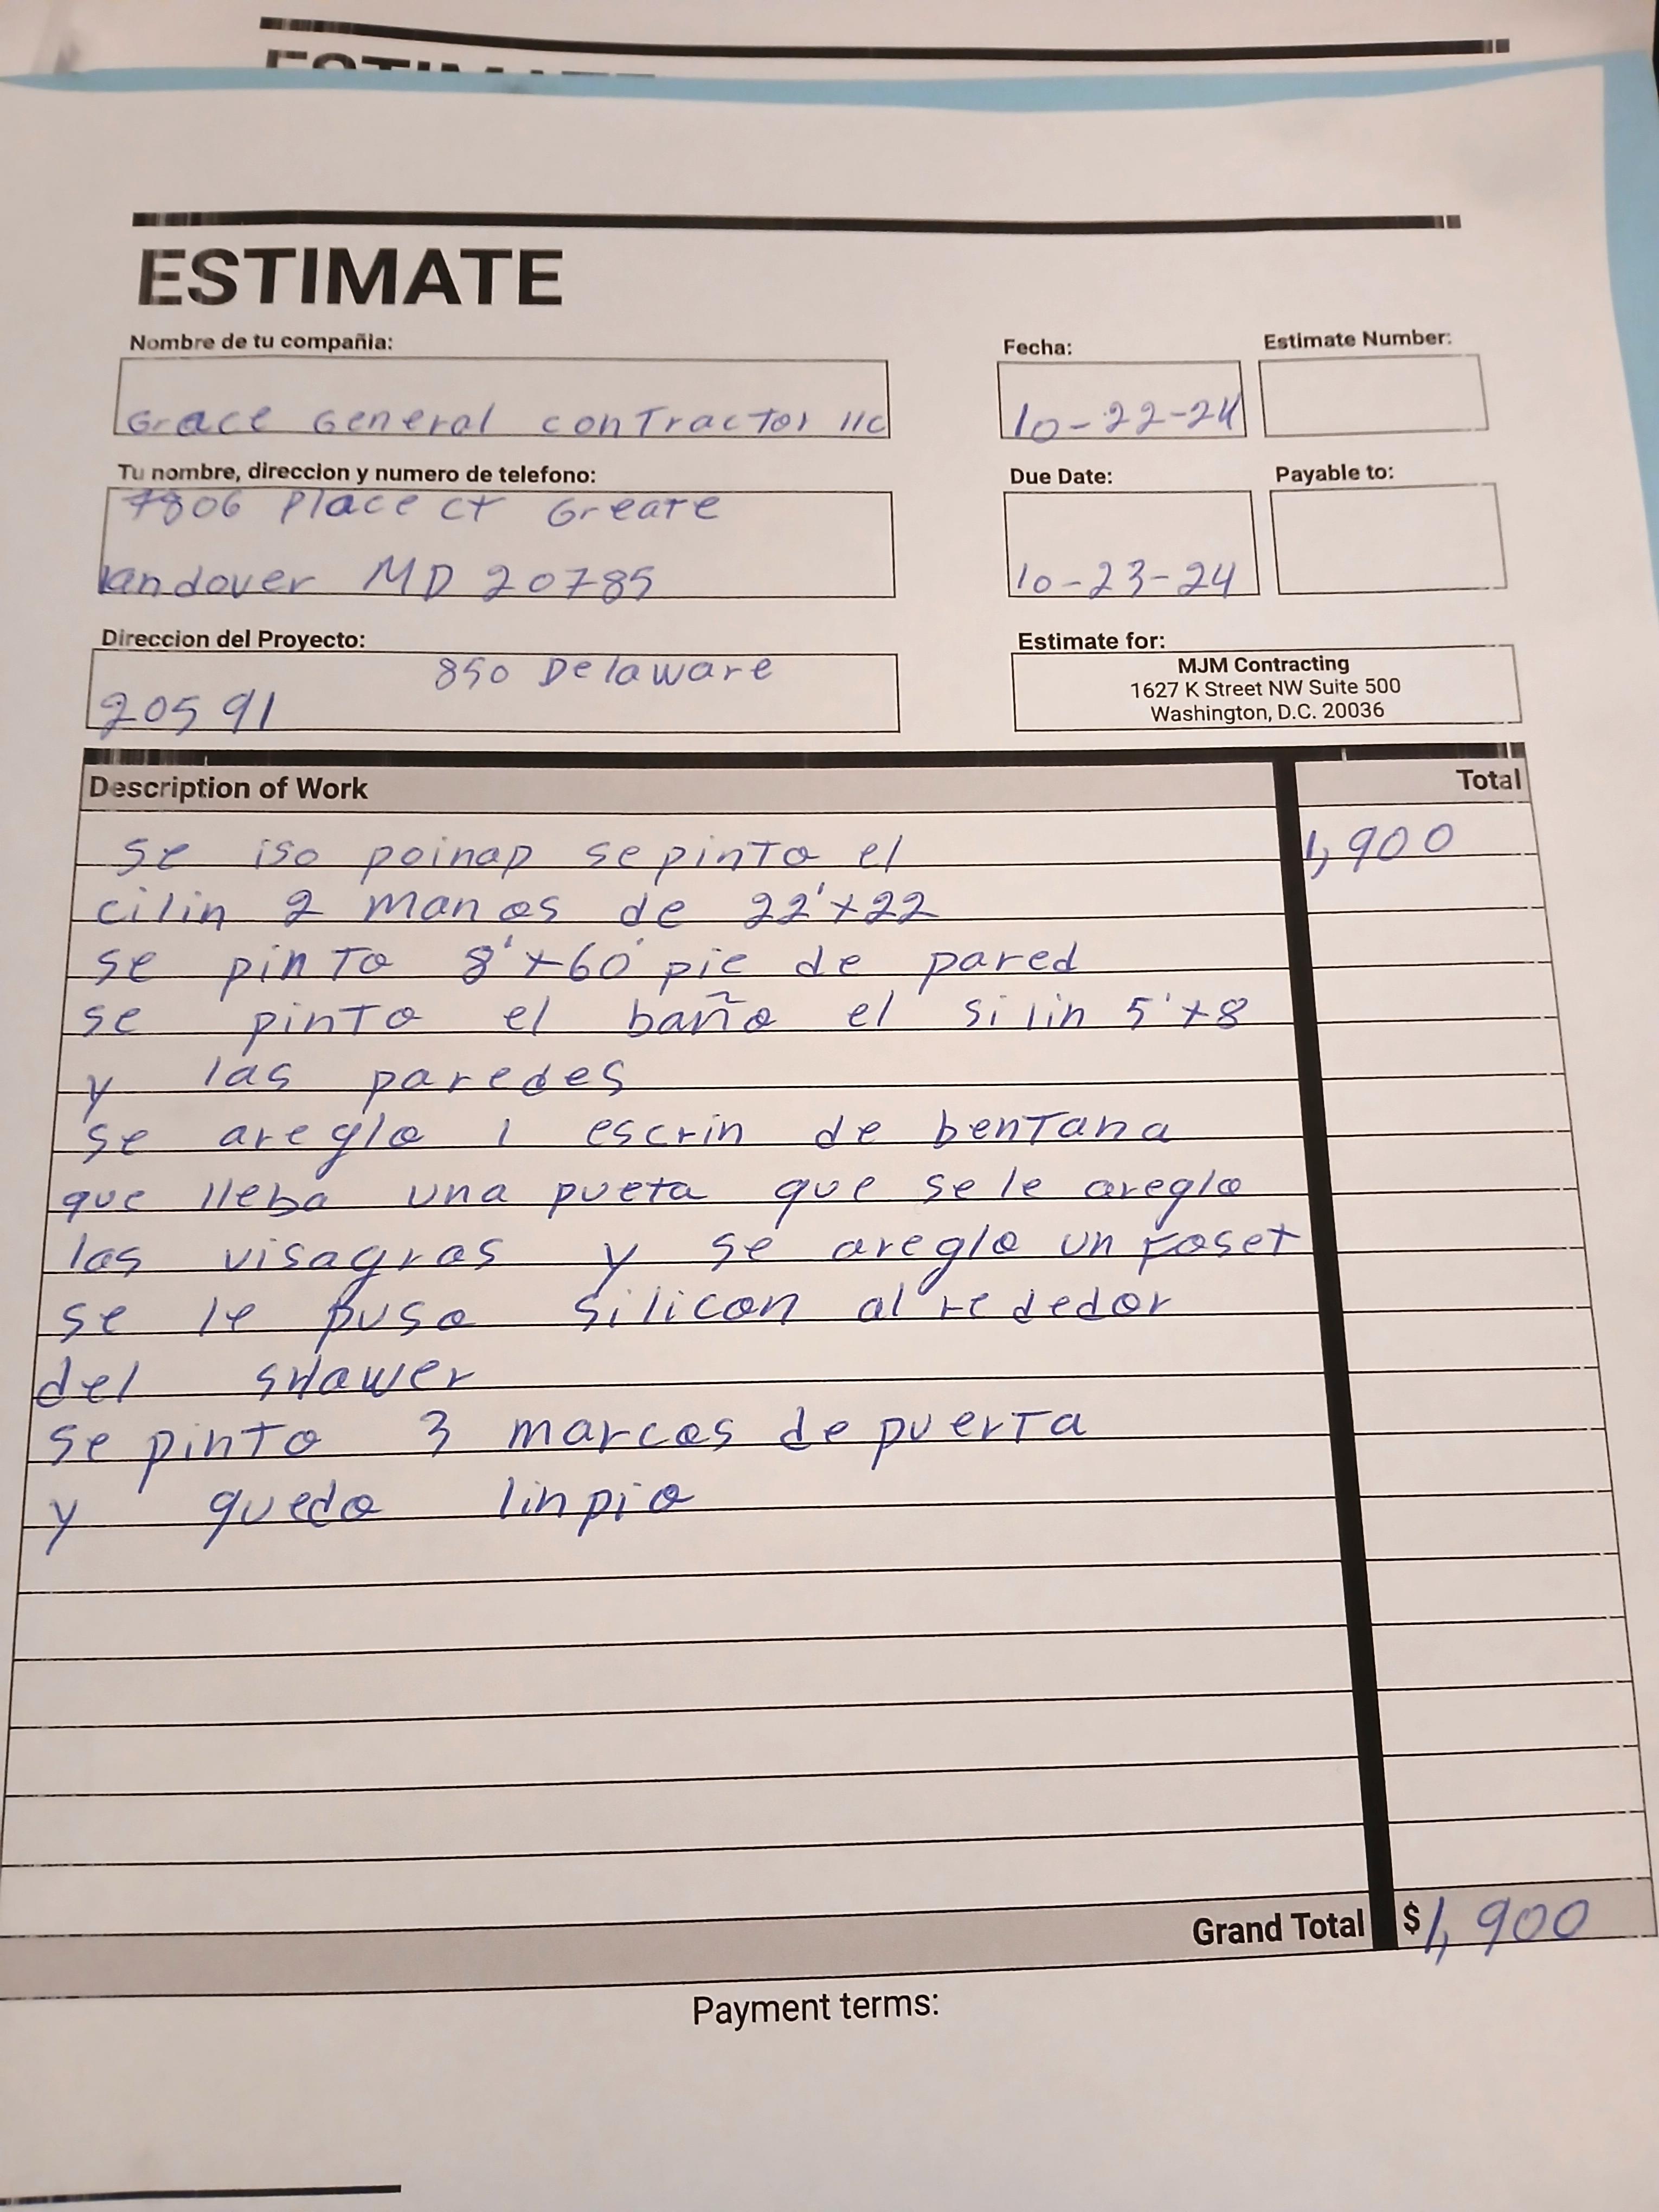 ESTIMATE
Nombre de tu compañia:
Grace General contractor llc
Fecha:
10-22-24
Estimate Number:
Tu nombre, direccion y numero de telefono:
7806 Place ct Greate
landover MD 20785
Due Date:
10-23-24
Payable to:
Direccion del Proyecto:
850 Delaware
20591
Estimate for:
MJM Contracting
1627 K Street NW Suite 500
Washington, D.C. 20036
Description of Work Total
se iso poinap se pinto el 1,900
cilin 2 manos de 22'x22
se pinto 8'x60' pie de pared
se pinto el baño el silin 5'x8
y las paredes
se areglo 1 escrin de bentana
que lleba una pueta que se le areglo
las visagras y se areglo un foset
se le puso silicon al rededor
del shawer
se pinto 3 marcos de puerta
y quedo linpio
Grand Total $1,900
Payment terms: